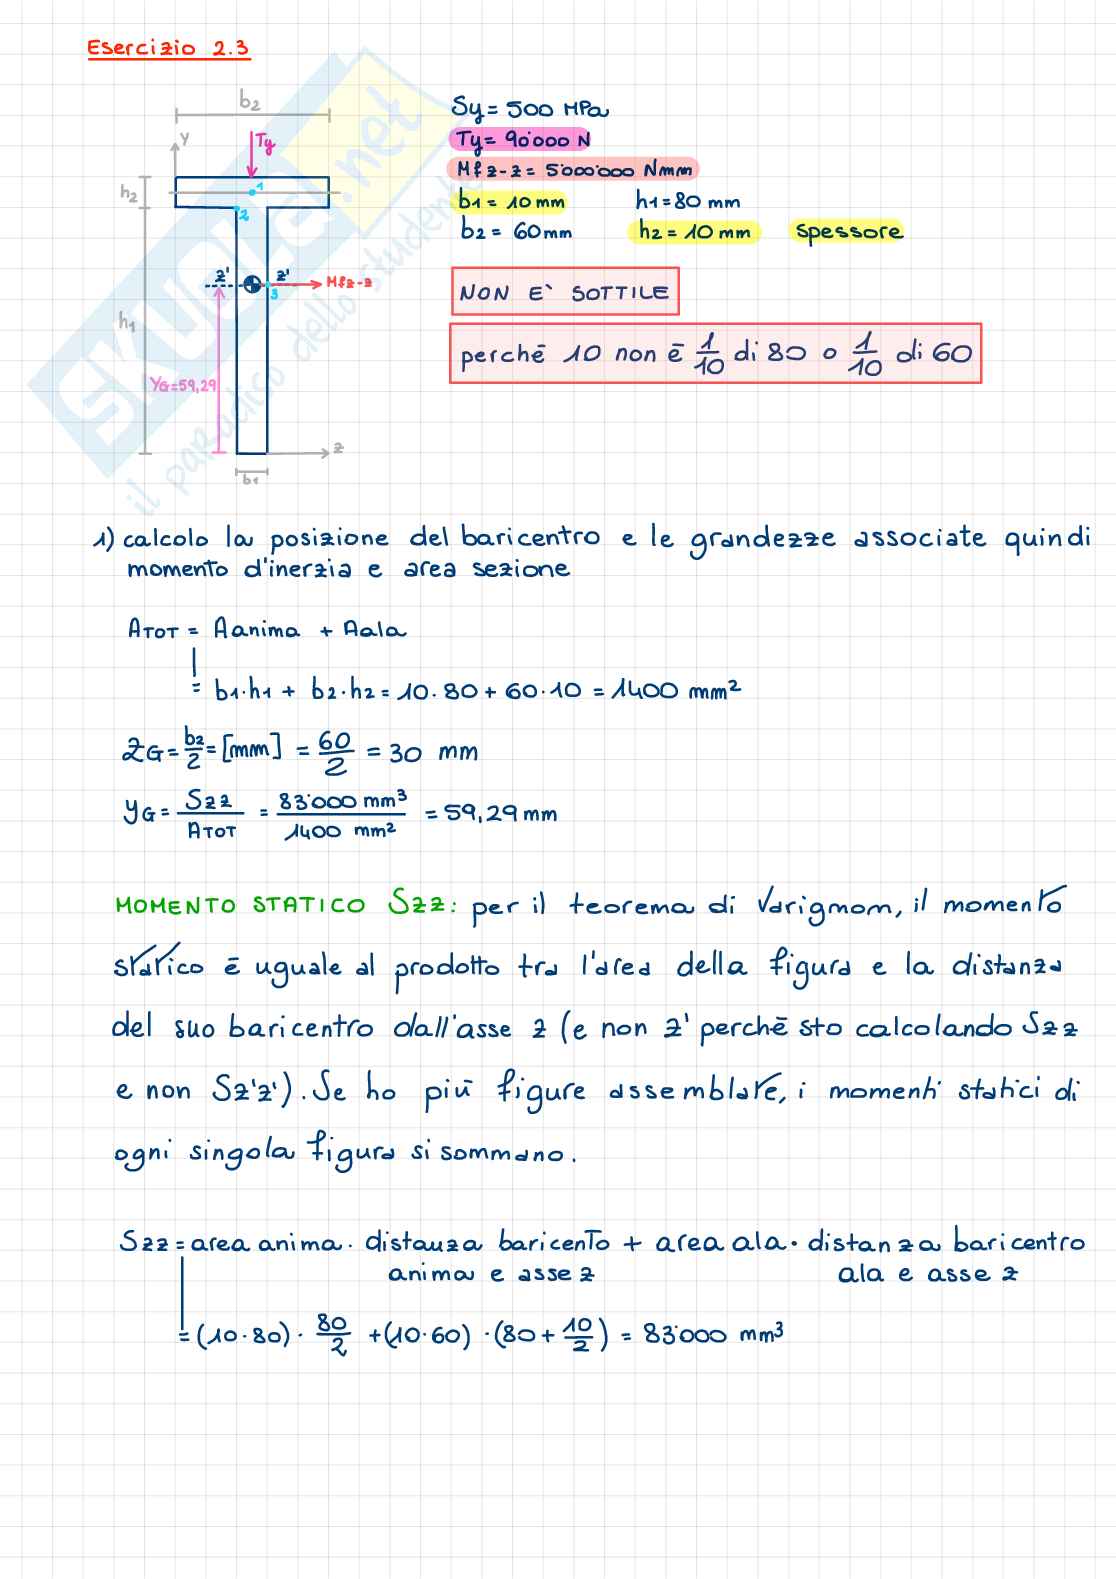 Esercizio 2.3
b2
Sy = 500 MPa
y
Ty
Ty = 90'000 N
h2
1
Mf z-z = 5'000'000 Nmm
b1 = 10 mm h1 = 80 mm
2
b2 = 60 mm h2 = 10 mm spessore
z' z' Mfz-z
3
NON E` SOTTILE
h1
perchē 10 non ē 1/10 di 80 o 1/10 di 60
YG=59,29
z
b1
SKUOLA.net
il paradiso dello studente
1) calcolo la posizione del baricentro e le grandezze associate quindi
momento d'inerzia e area sezione
ATOT = Aanima + Aala
= b1·h1 + b2·h2 = 10·80 + 60·10 = 1400 mm²
ZG = b2/2 = [mm] = 60/2 = 30 mm
YG = Szz/ATOT = 83'000 mm³/1400 mm² = 59,29 mm
MOMENTO STATICO Szz: per il teorema di Varignom, il momento
statico ē uguale al prodotto tra l'area della figura e la distanza
del suo baricentro dall'asse z (e non z' perchē sto calcolando Szz
e non Sz'z'). Se ho piū figure assemblate, i momenti statici di
ogni singola figura si sommano.
Szz = area anima · distanza baricento + area ala · distanza baricentro
anima e asse z ala e asse z
= (10·80) · 80/2 + (10·60) · (80 + 10/2) = 83'000 mm³